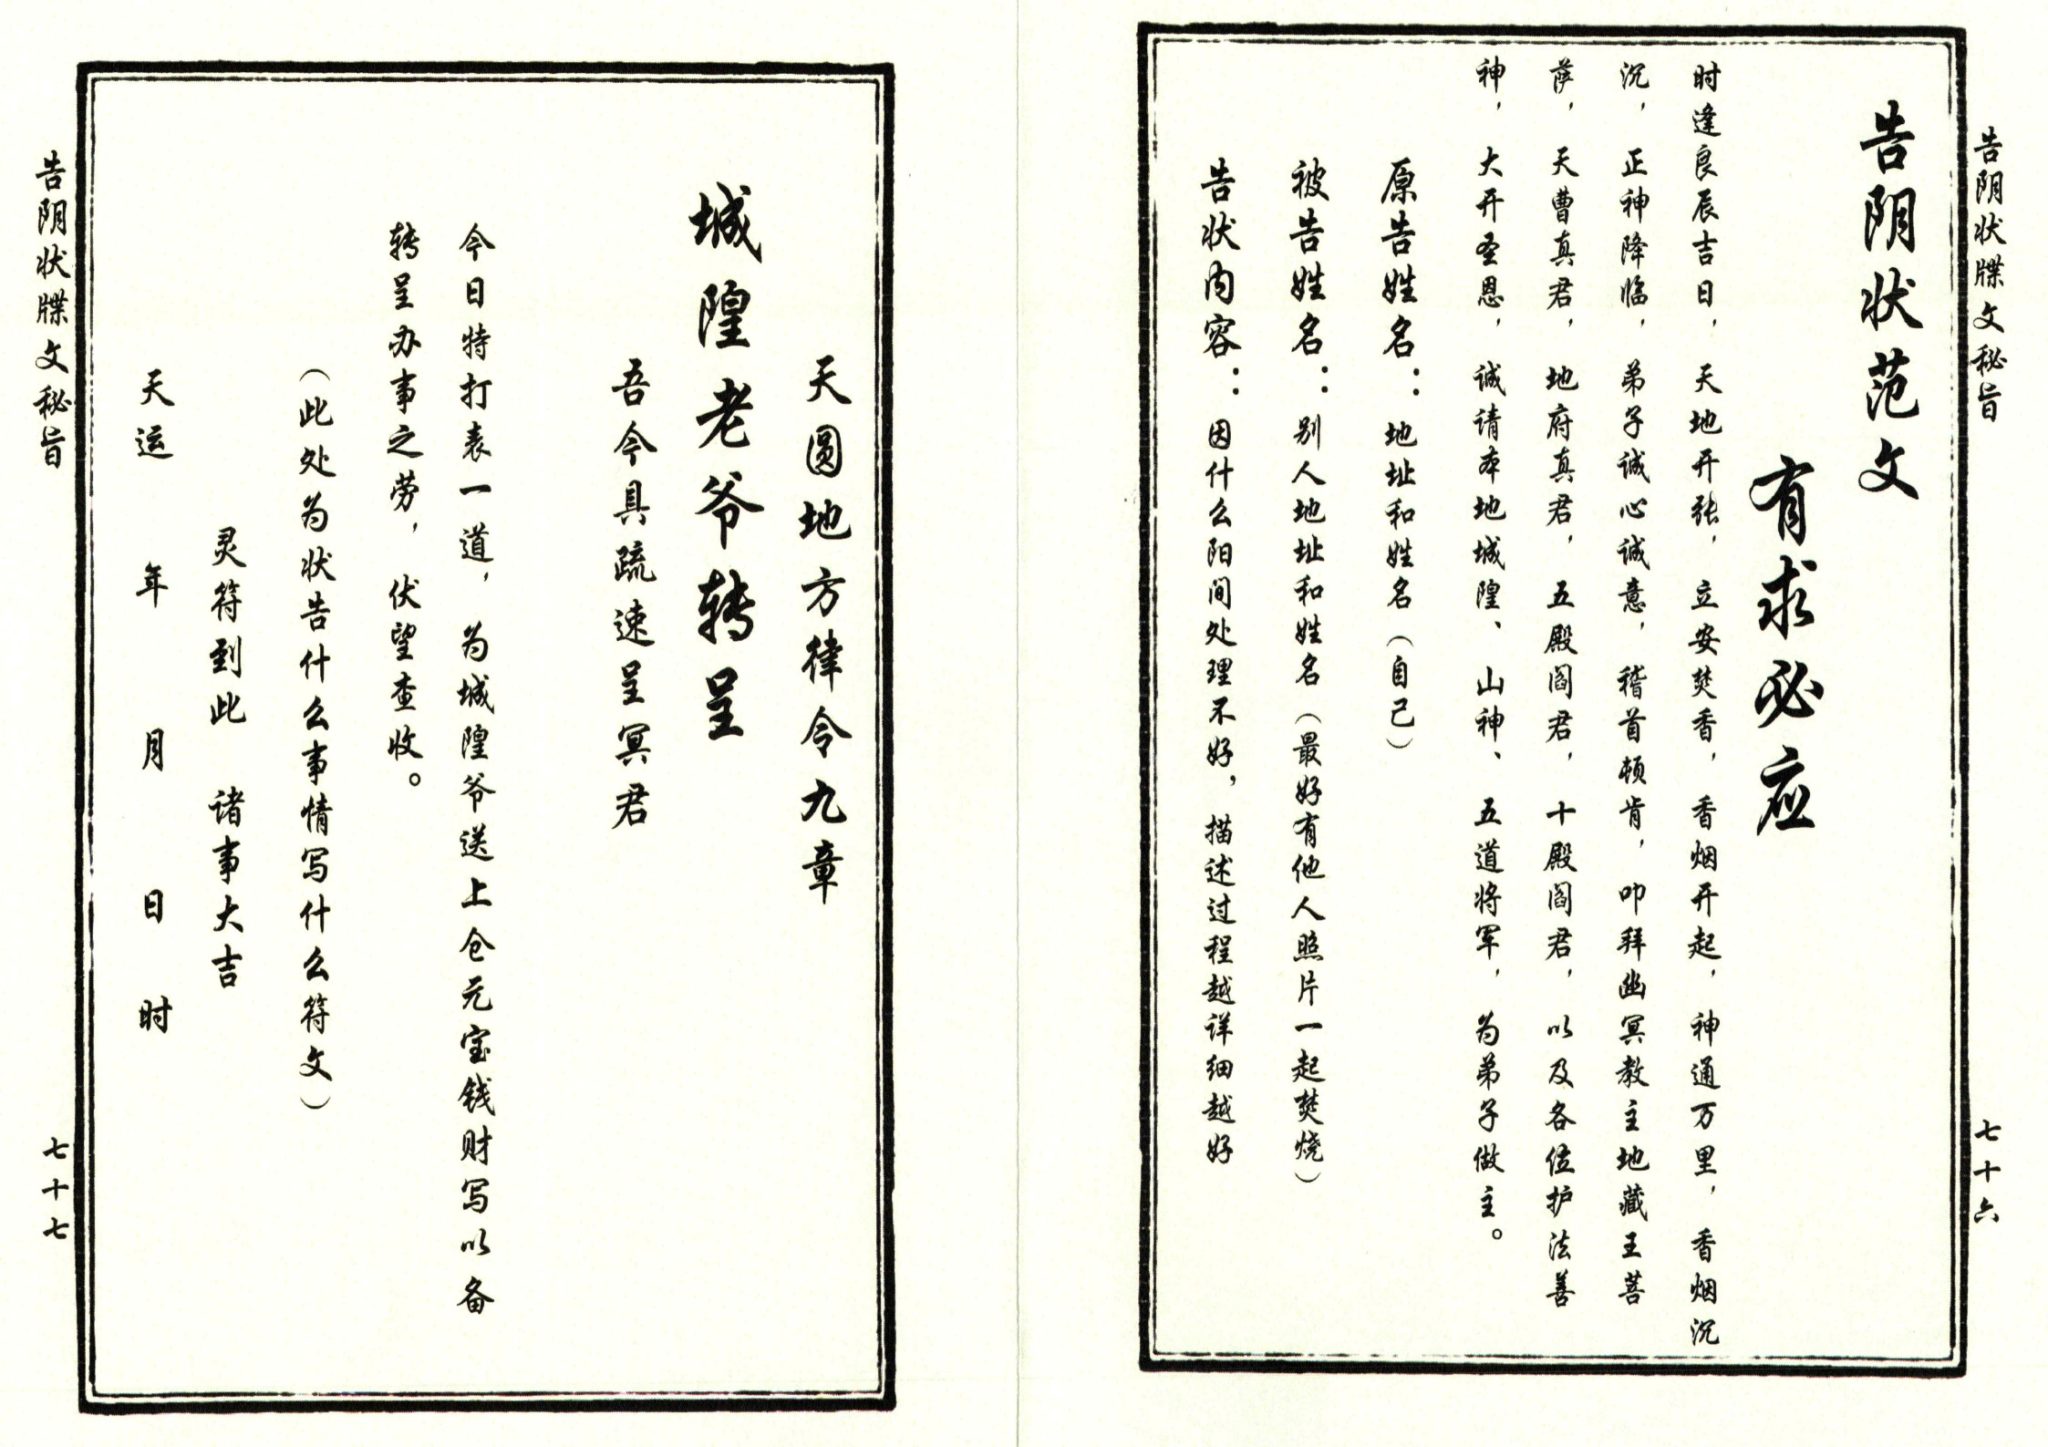 告阴状牒文秘旨
七十六
告阴状范文
有求必应
时逢良辰吉日，天地开张，立安焚香，香烟开起，神通万里，香烟沉
沉，正神降临，弟子诚心诚意，稽首顿肯，叩拜幽冥教主地藏王菩
萨，天曹真君，地府真君，五殿阎君，十殿阎君，以及各位护法善
神，大开圣恩，诚请本地城隍、山神、五道将军，为弟子做主。
原告姓名：地址和姓名（自己）
被告姓名：别人地址和姓名（最好有他人照片一起焚烧）
告状内容：因什么阳间处理不好，描述过程越详细越好
天圆地方律令九章
城隍老爷转呈
吾今具疏速呈冥君
今日特打表一道，为城隍爷送上仓元宝钱财写以备
转呈办事之劳，伏望查收。
（此处为状告什么事情写什么符文）
灵符到此 诸事大吉
天运 年 月 日 时
告阴状牒文秘旨
七十七